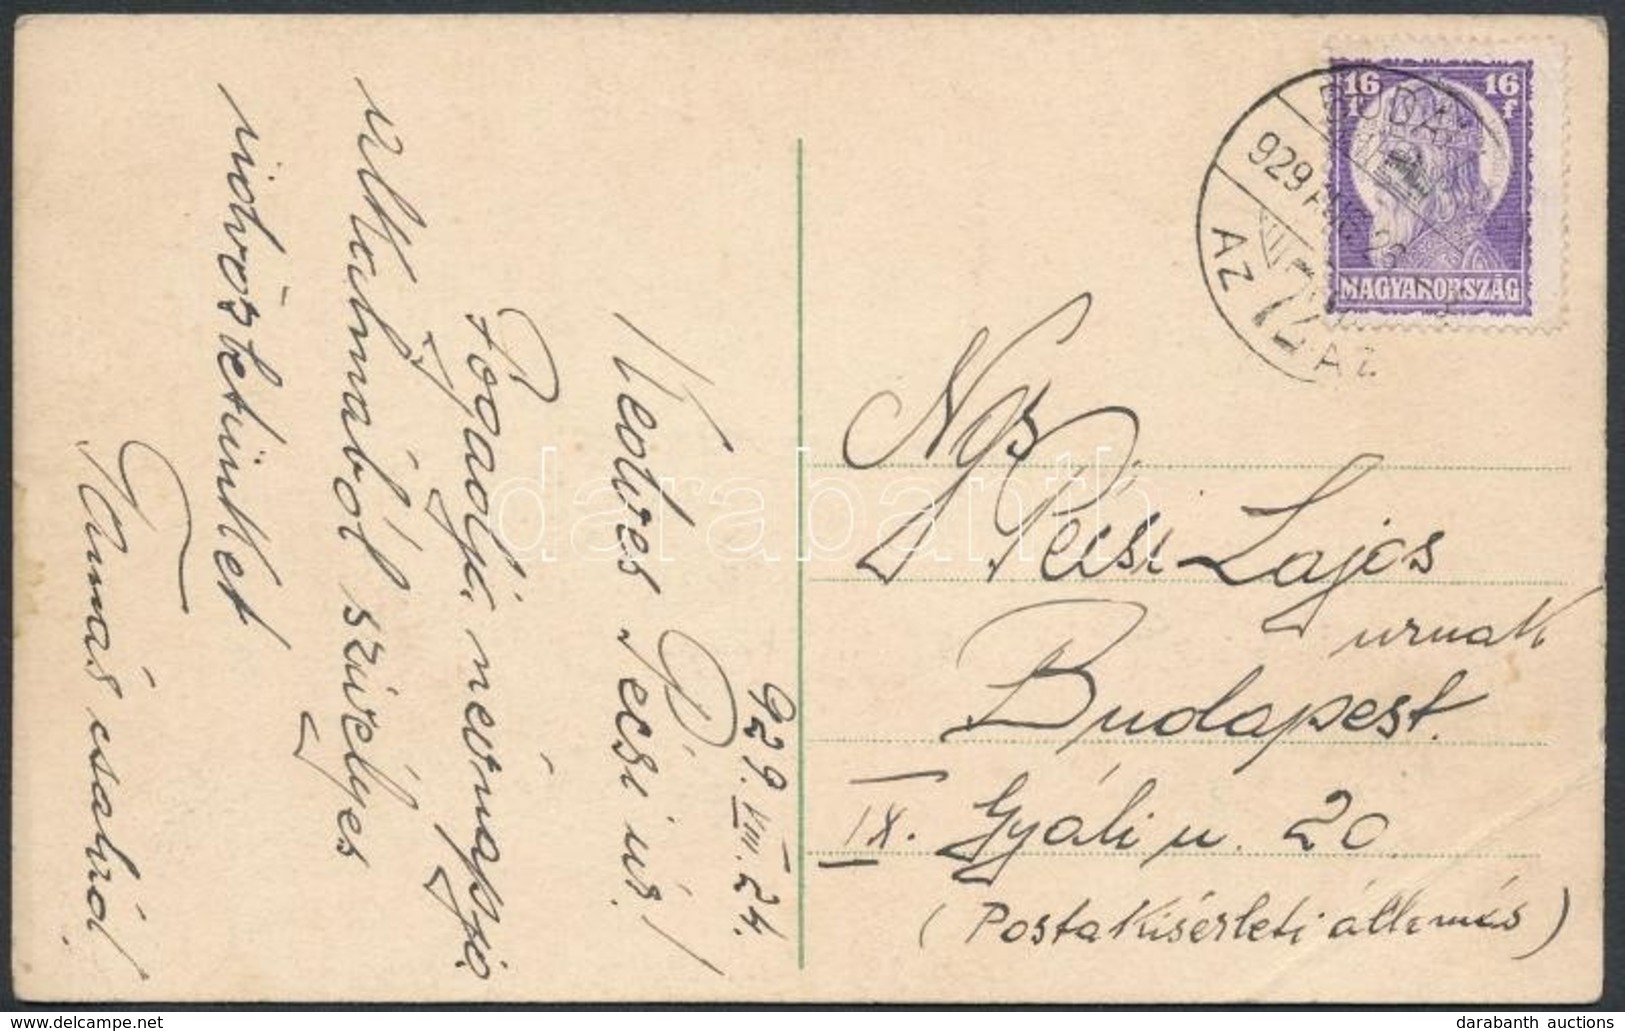 929. VIII. 24.
Kedves Pécsi úr!
Fogadja névnapja
alkalmából szívélyes
üdvözletünket
Tamás család.
16 f
16 f
MAGYARORSZÁG
BUDA
929 AUG 25
72
AZ
AZ
Ngs.
Pécsi Lajos
urnak
Budapest.
IX. Gyáli u. 20
(Postakisérleti állomás)
darabanth
darabanth auctions
www.delcampe.net